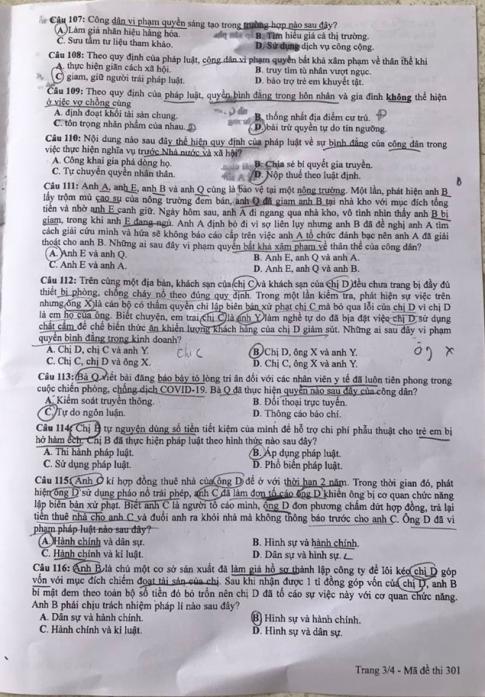 Câu 107: Công dân vi phạm quyền sáng tạo trong trường hợp nào sau đây?
A. Làm giả nhãn hiệu hàng hóa. B. Tìm hiểu giá cả thị trường.
C. Sưu tầm tư liệu tham khảo. D. Sử dụng dịch vụ công cộng.
Câu 108: Theo quy định của pháp luật, công dân vi phạm quyền bất khả xâm phạm về thân thể khi
A. thực hiện giãn cách xã hội. B. truy tìm tù nhân vượt ngục.
C. giam, giữ người trái pháp luật. D. bảo trợ trẻ em khuyết tật.
Câu 109: Theo quy định của pháp luật, quyền bình đẳng trong hôn nhân và gia đình không thể hiện
ở việc vợ chồng cùng
A. định đoạt khối tài sản chung. B. thống nhất địa điểm cư trú.
C. tôn trọng nhân phẩm của nhau. D. bài trừ quyền tự do tín ngưỡng.
Câu 110: Nội dung nào sau đây thể hiện quy định của pháp luật về sự bình đẳng của công dân trong
việc thực hiện nghĩa vụ trước Nhà nước và xã hội?
A. Công khai gia phả dòng họ. B. Chia sẻ bí quyết gia truyền.
C. Tự chuyển quyền nhân thân. D. Nộp thuế theo luật định.
Câu 111: Anh A, anh E, anh B và anh Q cùng là bảo vệ tại một nông trường. Một lần, phát hiện anh B
lấy trộm mủ cao su của nông trường đem bán, anh Q đã giam anh B tại nhà kho với mục đích tống
tiền và nhờ anh E canh giữ. Ngày hôm sau, anh A đi ngang qua nhà kho, vô tình nhìn thấy anh B bị
giam, trong khi anh E đang ngủ. Anh A định bỏ đi vì sợ liên lụy nhưng anh B đã đề nghị anh A tìm
cách giải cứu mình và hứa sẽ không báo cáo cấp trên việc anh A tổ chức đánh bạc nên anh A đã giải
thoát cho anh B. Những ai sau đây vi phạm quyền bất khả xâm phạm về thân thể của công dân?
A. Anh E và anh Q. B. Anh E, anh Q và anh A.
C. Anh E và anh A. D. Anh E, anh Q và anh B.
Câu 112: Trên cùng một địa bàn, khách sạn của chị C và khách sạn của chị D đều chưa trang bị đầy đủ
thiết bị phòng, chống cháy nổ theo đúng quy định. Trong một lần kiểm tra, phát hiện sự việc trên
nhưng ông X là cán bộ có thẩm quyền chỉ lập biên bản xử phạt chị C mà bỏ qua lỗi của chị D vì chị D
là em họ của ông. Biết chuyện, em trai chị C là anh Y làm nghề tự do đã bịa đặt việc chị D sử dụng
chất cấm để chế biến thức ăn khiến lượng khách hàng của chị D giảm sút. Những ai sau đây vi phạm
quyền bình đẳng trong kinh doanh?
A. Chị D, chị C và anh Y. Chị C B. Chị D, ông X và anh Y. ông X
C. Chị C, chị D và ông X. D. Chị C, ông X và anh Y.
Câu 113: Bà Q viết bài đăng báo bày tỏ lòng tri ân đối với các nhân viên y tế đã luôn tiên phong trong
cuộc chiến phòng, chống dịch COVID-19. Bà Q đã thực hiện quyền nào sau đây của công dân?
A. Kiểm soát truyền thông. B. Đối thoại trực tuyến.
C. Tự do ngôn luận. D. Thông cáo báo chí.
Câu 114: Chị B tự nguyện dùng số tiền tiết kiệm của mình để hỗ trợ chi phí phẫu thuật cho trẻ em bị
hở hàm ếch. Chị B đã thực hiện pháp luật theo hình thức nào sau đây?
A. Thi hành pháp luật. B. Áp dụng pháp luật.
C. Sử dụng pháp luật. D. Phổ biến pháp luật.
Câu 115: Anh C kí hợp đồng thuê nhà của ông D để ở với thời hạn 2 năm. Trong thời gian đó, phát
hiện ông D sử dụng pháo nổ trái phép, anh C đã làm đơn tố cáo ông D khiến ông bị cơ quan chức năng
lập biên bản xử phạt. Biết anh C là người tố cáo mình, ông D đơn phương chấm dứt hợp đồng, trả lại
tiền thuê nhà cho anh C và đuổi anh ra khỏi nhà mà không thông báo trước cho anh C. Ông D đã vi
phạm pháp luật nào sau đây?
A. Hành chính và dân sự. B. Hình sự và hành chính.
C. Hành chính và kỉ luật. D. Dân sự và hình sự.
Câu 116: Anh B là chủ một cơ sở sản xuất đã làm giả hồ sơ thành lập công ty để lôi kéo chị D góp
vốn với mục đích chiếm đoạt tài sản của chị. Sau khi nhận được 1 tỉ đồng góp vốn của chị D, anh B
bí mật đem theo toàn bộ số tiền đó bỏ trốn nên chị D đã tố cáo sự việc này với cơ quan chức năng.
Anh B phải chịu trách nhiệm pháp lí nào sau đây?
A. Dân sự và hành chính. B. Hình sự và hành chính.
C. Hành chính và kỉ luật. D. Hình sự và dân sự.
Trang 3/4 - Mã đề thi 301